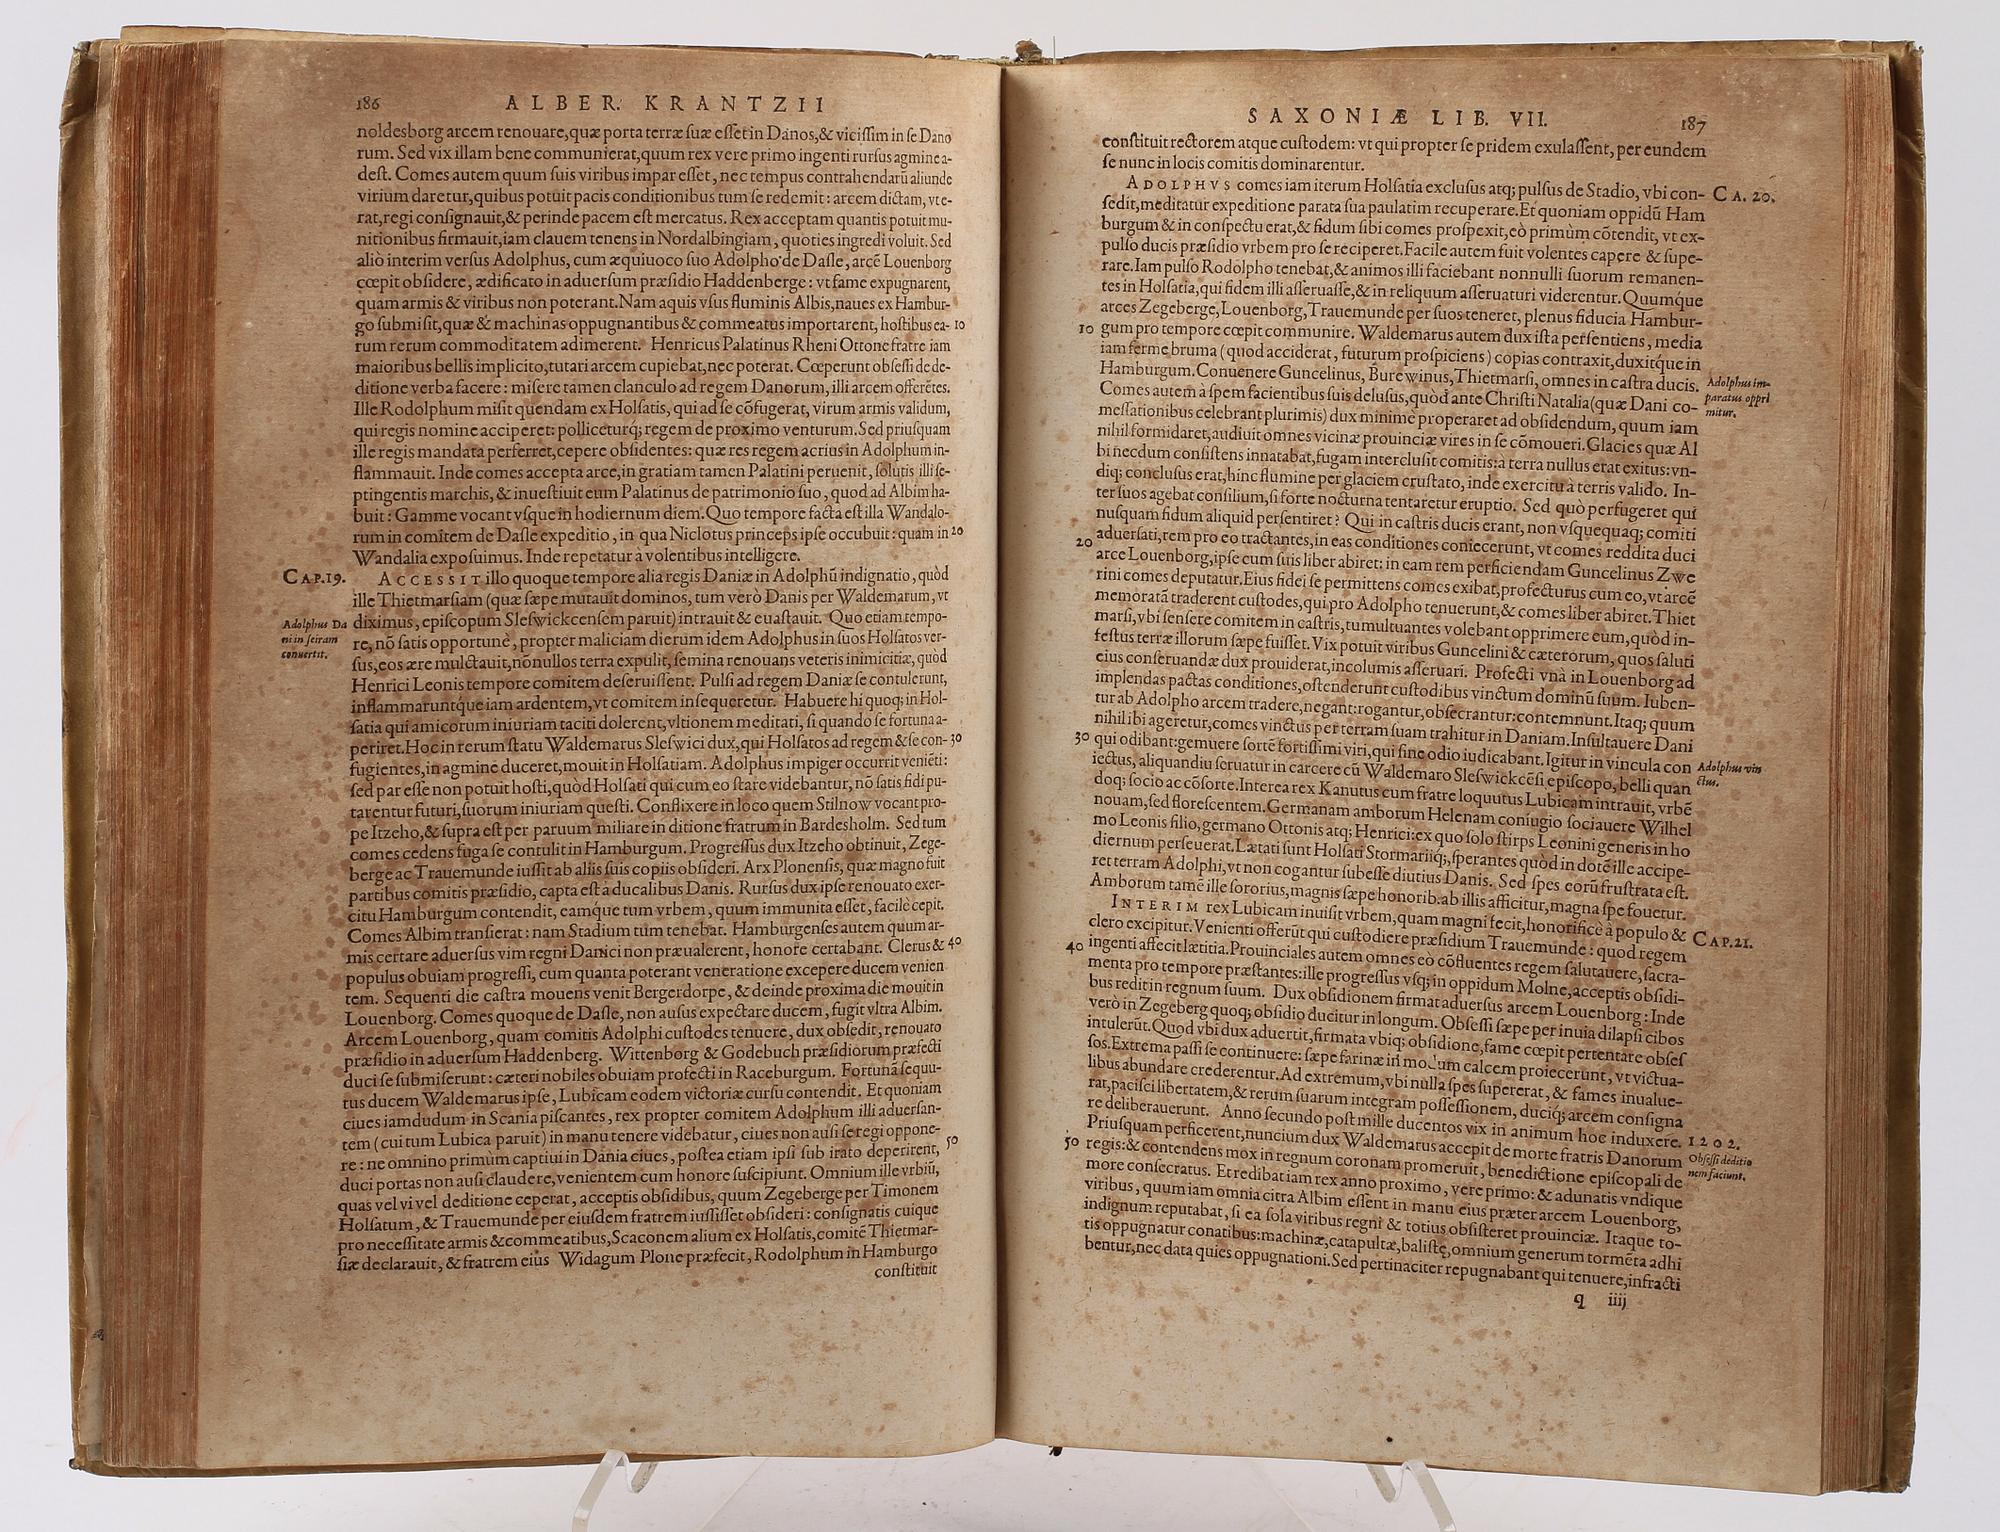 186 ALBER. KRANTZII
noldesborg arcem renouare, quæ porta terræ suæ esset in Danos, & vicissim in se Dano
rum. Sed vix illam bene communierat, quum rex vere primo ingenti rursus agmine a-
dest. Comes autem quum suis viribus impar esset, nec tempus contrahendarũ aliunde
virium daretur, quibus potuit pacis conditionibus tum se redemit: arcem dictam, vt e-
rat, regi consignauit, & perinde pacem est mercatus. Rex acceptam quantis potuit mu-
nitionibus firmauit, iam clauem tenens in Nordalbingiam, quoties ingredi voluit. Sed
aliò interim versus Adolphus, cum æquiuoco suo Adolpho de Dasle, arcẽ Louenborg
cœpit obsidere, ædificato in aduersum præsidio Haddenberge: vt fame expugnarent,
quam armis & viribus non poterant. Nam aquis vsus fluminis Albis, naues ex Hambur-
go submisit, quæ & machinas oppugnantibus & commeatus importarent, hostibus ea- 10
rum rerum commoditatem adimerent. Henricus Palatinus Rheni Ottone fratre iam
maioribus bellis implicito, tutari arcem cupiebat, nec poterat. Cœperunt obsessi de de-
ditione verba facere: misere tamen clanculo ad regem Danorum, illi arcem offerẽtes.
Ille Rodolphum misit quendam ex Holsatis, qui ad se cõfugerat, virum armis validum,
qui regis nomine acciperet: polliceturq; regem de proximo venturum. Sed priusquam
ille regis mandata perferret, cepere obsidentes: quæ res regem acrius in Adolphum in-
flammauit. Inde comes accepta arce, in gratiam tamen Palatini peruenit, solutis illi se-
ptingentis marchis, & inuestiuit eum Palatinus de patrimonio suo, quod ad Albim ha-
buit: Gamme vocant vsque in hodiernum diem. Quo tempore facta est illa Wandalo-
rum in comitem de Dasle expeditio, in qua Niclotus princeps ipse occubuit: quam in 20
Wandalia exposuimus. Inde repetatur à volentibus intelligere.
CAP. 19. ACCESSIT illo quoque tempore alia regis Daniæ in Adolphũ indignatio, quòd
ille Thietmarsiam (quæ sæpe mutauit dominos, tum verò Danis per Waldemarum, vt
Adolphus Da diximus, episcopum Sleswickcensem paruit) intrauit & euastauit. Quo etiam tempo-
ni in se iram re, nõ satis opportunè, propter maliciam dierum idem Adolphus in suos Holsatos ver-
conuertit. sus, eos ære mulctauit, nõnullos terra expulit, semina renouans veteris inimicitiæ, quòd
Henrici Leonis tempore comitem deseruissent. Pulsi ad regem Daniæ se contulerunt,
inflammaruntq́ue iam ardentem, vt comitem insequeretur. Habuere hi quoq; in Hol-
satia qui amicorum iniuriam taciti dolerent, vltionem meditati, si quando se fortuna a-
periret. Hoc in rerum statu Waldemarus Sleswici dux, qui Holsatos ad regem & se con- 30
fugientes, in agmine duceret, mouit in Holsatiam. Adolphus impiger occurrit veniẽti:
sed par esse non potuit hosti, quòd Holsati qui cum eo stare videbantur, nõ satis fidi pu-
tarentur futuri, suorum iniuriam questi. Conflixere in loco quem Stilnow vocant pro-
pe Itzeho, & supra est per paruum miliare in ditione fratrum in Bardesholm. Sed tum
comes cedens fuga se contulit in Hamburgum. Progressus dux Itzeho obtinuit, Zege-
berge ac Trauemunde iussit ab aliis suis copiis obsideri. Arx Plonensis, quæ magno fuit
partibus comitis præsidio, capta est à ducalibus Danis. Rursus dux ipse renouato exer-
citu Hamburgum contendit, eamq́ue tum vrbem, quum immunita esset, facilè cepit.
Comes Albim transierat: nam Stadium tùm tenebat. Hamburgenses autem quum ar-
mis certare aduersus vim regni Danici non præualerent, honore certabant. Clerus & 40
populus obuiam progressi, cum quanta poterant veneratione excepere ducem venien
tem. Sequenti die castra mouens venit Bergerdorpe, & deinde proxima die mouit in
Louenborg. Comes quoque de Dasle, non ausus expectare ducem, fugit vltra Albim.
Arcem Louenborg, quam comitis Adolphi custodes tenuere, dux obsedit, renouato
præsidio in aduersum Haddenberg. Wittenborg & Godebuch præsidiorum præfecti
duci se submiserunt: cæteri nobiles obuiam profecti in Raceburgum. Fortunã sequu-
tus ducem Waldemarus ipse, Lubicam eodem victoriæ cursu contendit. Et quoniam
ciues iamdudum in Scania piscantes, rex propter comitem Adolphum illi aduersan-
tem (cui tum Lubica paruit) in manu tenere videbatur, ciues non ausi se regi oppone-
re: ne omnino primùm captiui in Dania ciues, postea etiam ipsi sub irato deperirent, 50
duci portas non ausi claudere, venientem cum honore suscipiunt. Omnium ille vrbiũ,
quas vel vi vel deditione ceperat, acceptis obsidibus, quum Zegeberge per Timonem
Holsatum, & Trauemunde per eiusdem fratrem iussisset obsideri: consignatis cuique
pro necessitate armis & commeatibus, Scaconem alium ex Holsatis, comitẽ Thietmar-
siæ declarauit, & fratrem eius Widagum Plone præfecit, Rodolphum in Hamburgo
constituit
SAXONIÆ LIB. VII. 187
constituit rectorem atque custodem: vt qui propter se pridem exulassent, per eundem
se nunc in locis comitis dominarentur.
ADOLPHVS comes iam iterum Holsatia exclusus atq; pulsus de Stadio, vbi con- CA. 20.
sedit, meditatur expeditione parata sua paulatim recuperare. Et quoniam oppidũ Ham
burgum & in conspectu erat, & fidum sibi comes prospexit, eò primùm cõtendit, vt ex-
pulso ducis præsidio vrbem pro se reciperet. Facile autem fuit volentes capere & supe-
rare. Iam pulso Rodolpho tenebat, & animos illi faciebant nonnulli suorum remanen-
tes in Holsatia, qui fidem illi asseruasse, & in reliquum asseruaturi viderentur. Quumq́ue
arces Zegeberge, Louenborg, Trauemunde per suos teneret, plenus fiducia Hambur-
10 gum pro tempore cœpit communire. Waldemarus autem dux ista persentiens, media
iam ferme bruma (quod acciderat, futurum prospiciens) copias contraxit, duxitq́ue in
Hamburgum. Conuenere Guncelinus, Burewinus, Thietmarsi, omnes in castra ducis. Adolphus im-
Comes autem à spem facientibus suis delusus, quòd ante Christi Natalia (quæ Dani co- paratus oppri
messationibus celebrant plurimis) dux minimè properaret ad obsidendum, quum iam mitur.
nihil formidaret, audiuit omnes vicinæ prouinciæ vires in se cõmoueri. Glacies quæ Al
bi necdum consistens innatabat, fugam interclusit comitis: à terra nullus erat exitus: vn-
diq; conclusus erat, hinc flumine per glaciem crustato, inde exercitu à terris valido. In-
ter suos agebat consilium, si forte nocturna tentaretur eruptio. Sed quò perfugeret qui
nusquam fidum aliquid persentiret? Qui in castris ducis erant, non vsquequaq; comiti
20 aduersati, rem pro eo tractantes, in eas conditiones coniecerunt, vt comes reddita duci
arce Louenborg, ipse cum suis liber abiret: in eam rem perficiendam Guncelinus Zwe
rini comes deputatur. Eius fidei se permittens comes exibat, profecturus cum eo, vt arcẽ
memoratã traderent custodes, qui pro Adolpho tenuerunt, & comes liber abiret. Thiet
marsi, vbi sensere comitem in castris, tumultuantes volebant opprimere eum, quòd in-
festus terræ illorum sæpe fuisset. Vix potuit viribus Guncelini & cæterorum, quos saluti
eius conseruandæ dux prouiderat, incolumis asseruari. Profecti vnà in Louenborg ad
implendas pactas conditiones, ostenderunt custodibus vinctum dominũ suum. Iuben-
tur ab Adolpho arcem tradere, negant: rogantur, obsecrantur: contemnunt. Itaq; quum
nihil ibi ageretur, comes vinctus per terram suam trahitur in Daniam. Insultauere Dani
30 qui odibant: gemuere sortẽ fortissimi viri, qui sine odio iudicabant. Igitur in vincula con Adolphus vin
iectus, aliquandiu seruatur in carcere cũ Waldemaro Sleswickcẽsi episcopo, belli quan ctus.
doq; socio ac cõsorte. Interea rex Kanutus cum fratre loquutus Lubicam intrauit, vrbẽ
nouam, sed florescentem. Germanam amborum Helenam coniugio sociauere Wilhel
mo Leonis filio, germano Ottonis atq; Henrici: ex quo solo stirps Leonini generis in ho
diernum perseuerat. Lætati sunt Holsati Stormariiq;, sperantes quòd in dotẽ ille accipe-
ret terram Adolphi, vt non cogantur subesse diutius Danis. Sed spes eorũ frustrata est.
Amborum tamẽ ille sororius, magnis sæpe honorib. ab illis afficitur, magna spe fouetur.
INTERIM rex Lubicam inuisit vrbem, quam magni fecit, honorificè à populo & CAP. 21.
clero excipitur. Venienti offerũt qui custodiere præsidium Trauemunde: quod regem
40 ingenti affecit lætitia. Prouinciales autem omnes eò cõfluentes regem salutauere, sacra-
menta pro tempore præstantes: ille progressus vsq; in oppidum Molne, acceptis obsidi-
bus redit in regnum suum. Dux obsidionem firmat aduersus arcem Louenborg: Inde
verò in Zegeberg quoq; obsidio ducitur in longum. Obsessi sæpe per inuia dilapsi cibos
intulerũt. Quod vbi dux aduertit, firmata vbiq; obsidione, fame cœpit pertentare obses
sos. Extrema passi se continuere: sæpe farinæ in modum calcem proiecerunt, vt victua-
libus abundare crederentur. Ad extremum, vbi nulla spes supererat, & fames inualue-
rat, pacisci libertatem, & rerum suarum integram possessionem, duciq; arcem consigna
re deliberauerunt. Anno secundo post mille ducentos vix in animum hoc induxere. 1202.
Priusquam perficerent, nuncium dux Waldemarus accepit de morte fratris Danorum Obsessi deditio
50 regis: & contendens mox in regnum coronam promeruit, benedictione episcopali de nem faciunt.
more consecratus. Et redibat iam rex anno proximo, vere primo: & adunatis vndique
viribus, quum iam omnia citra Albim essent in manu eius præter arcem Louenborg,
indignum reputabat, si ea sola viribus regni & totius obsisteret prouinciæ. Itaque to-
tis oppugnatur conatibus: machinæ, catapultæ, balistę, omnium generum tormẽta adhi
bentur, nec data quies oppugnationi. Sed pertinaciter repugnabant qui tenuere, infracti
q iiij